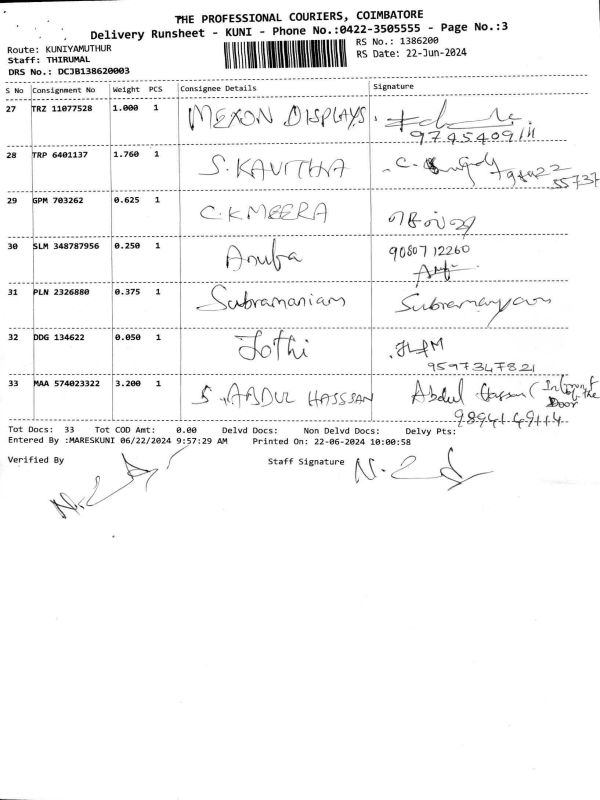 THE PROFESSIONAL COURIERS, COIMBATORE
Delivery Runsheet - KUNI - Phone No.:0422-3505555 - Page No.:3
Route: KUNIYAMUTHUR
RS No.: 1386200
Staff: THIRUMAL
RS Date: 22-Jun-2024
DRS No.: DCJB138620003
S No Consignment No Weight PCS Consignee Details Signature
27 TRZ 11077528 1.000 1 MEXON DISPLAYS.
9745409111
28 TRP 6401137 1.760 1 S.KAVITHA
55737
29 GPM 703262 0.625 1 C.K MEERA
30 SLM 348787956 0.250 1 Anuba 9080712260
31 PLN 2326880 0.375 1 Subramaniam Subramanyam
32 DDG 134622 0.050 1 Jothi
9597347821
33 MAA 574023322 3.200 1 S.ABDUL HASSSAN Abdul Hassan (Infront of the Door
9894149114
Tot Docs: 33 Tot COD Amt: 0.00 Delvd Docs: Non Delvd Docs: Delvy Pts:
Entered By :MARESKUNI 06/22/2024 9:57:29 AM Printed On: 22-06-2024 10:00:58
Verified By Staff Signature